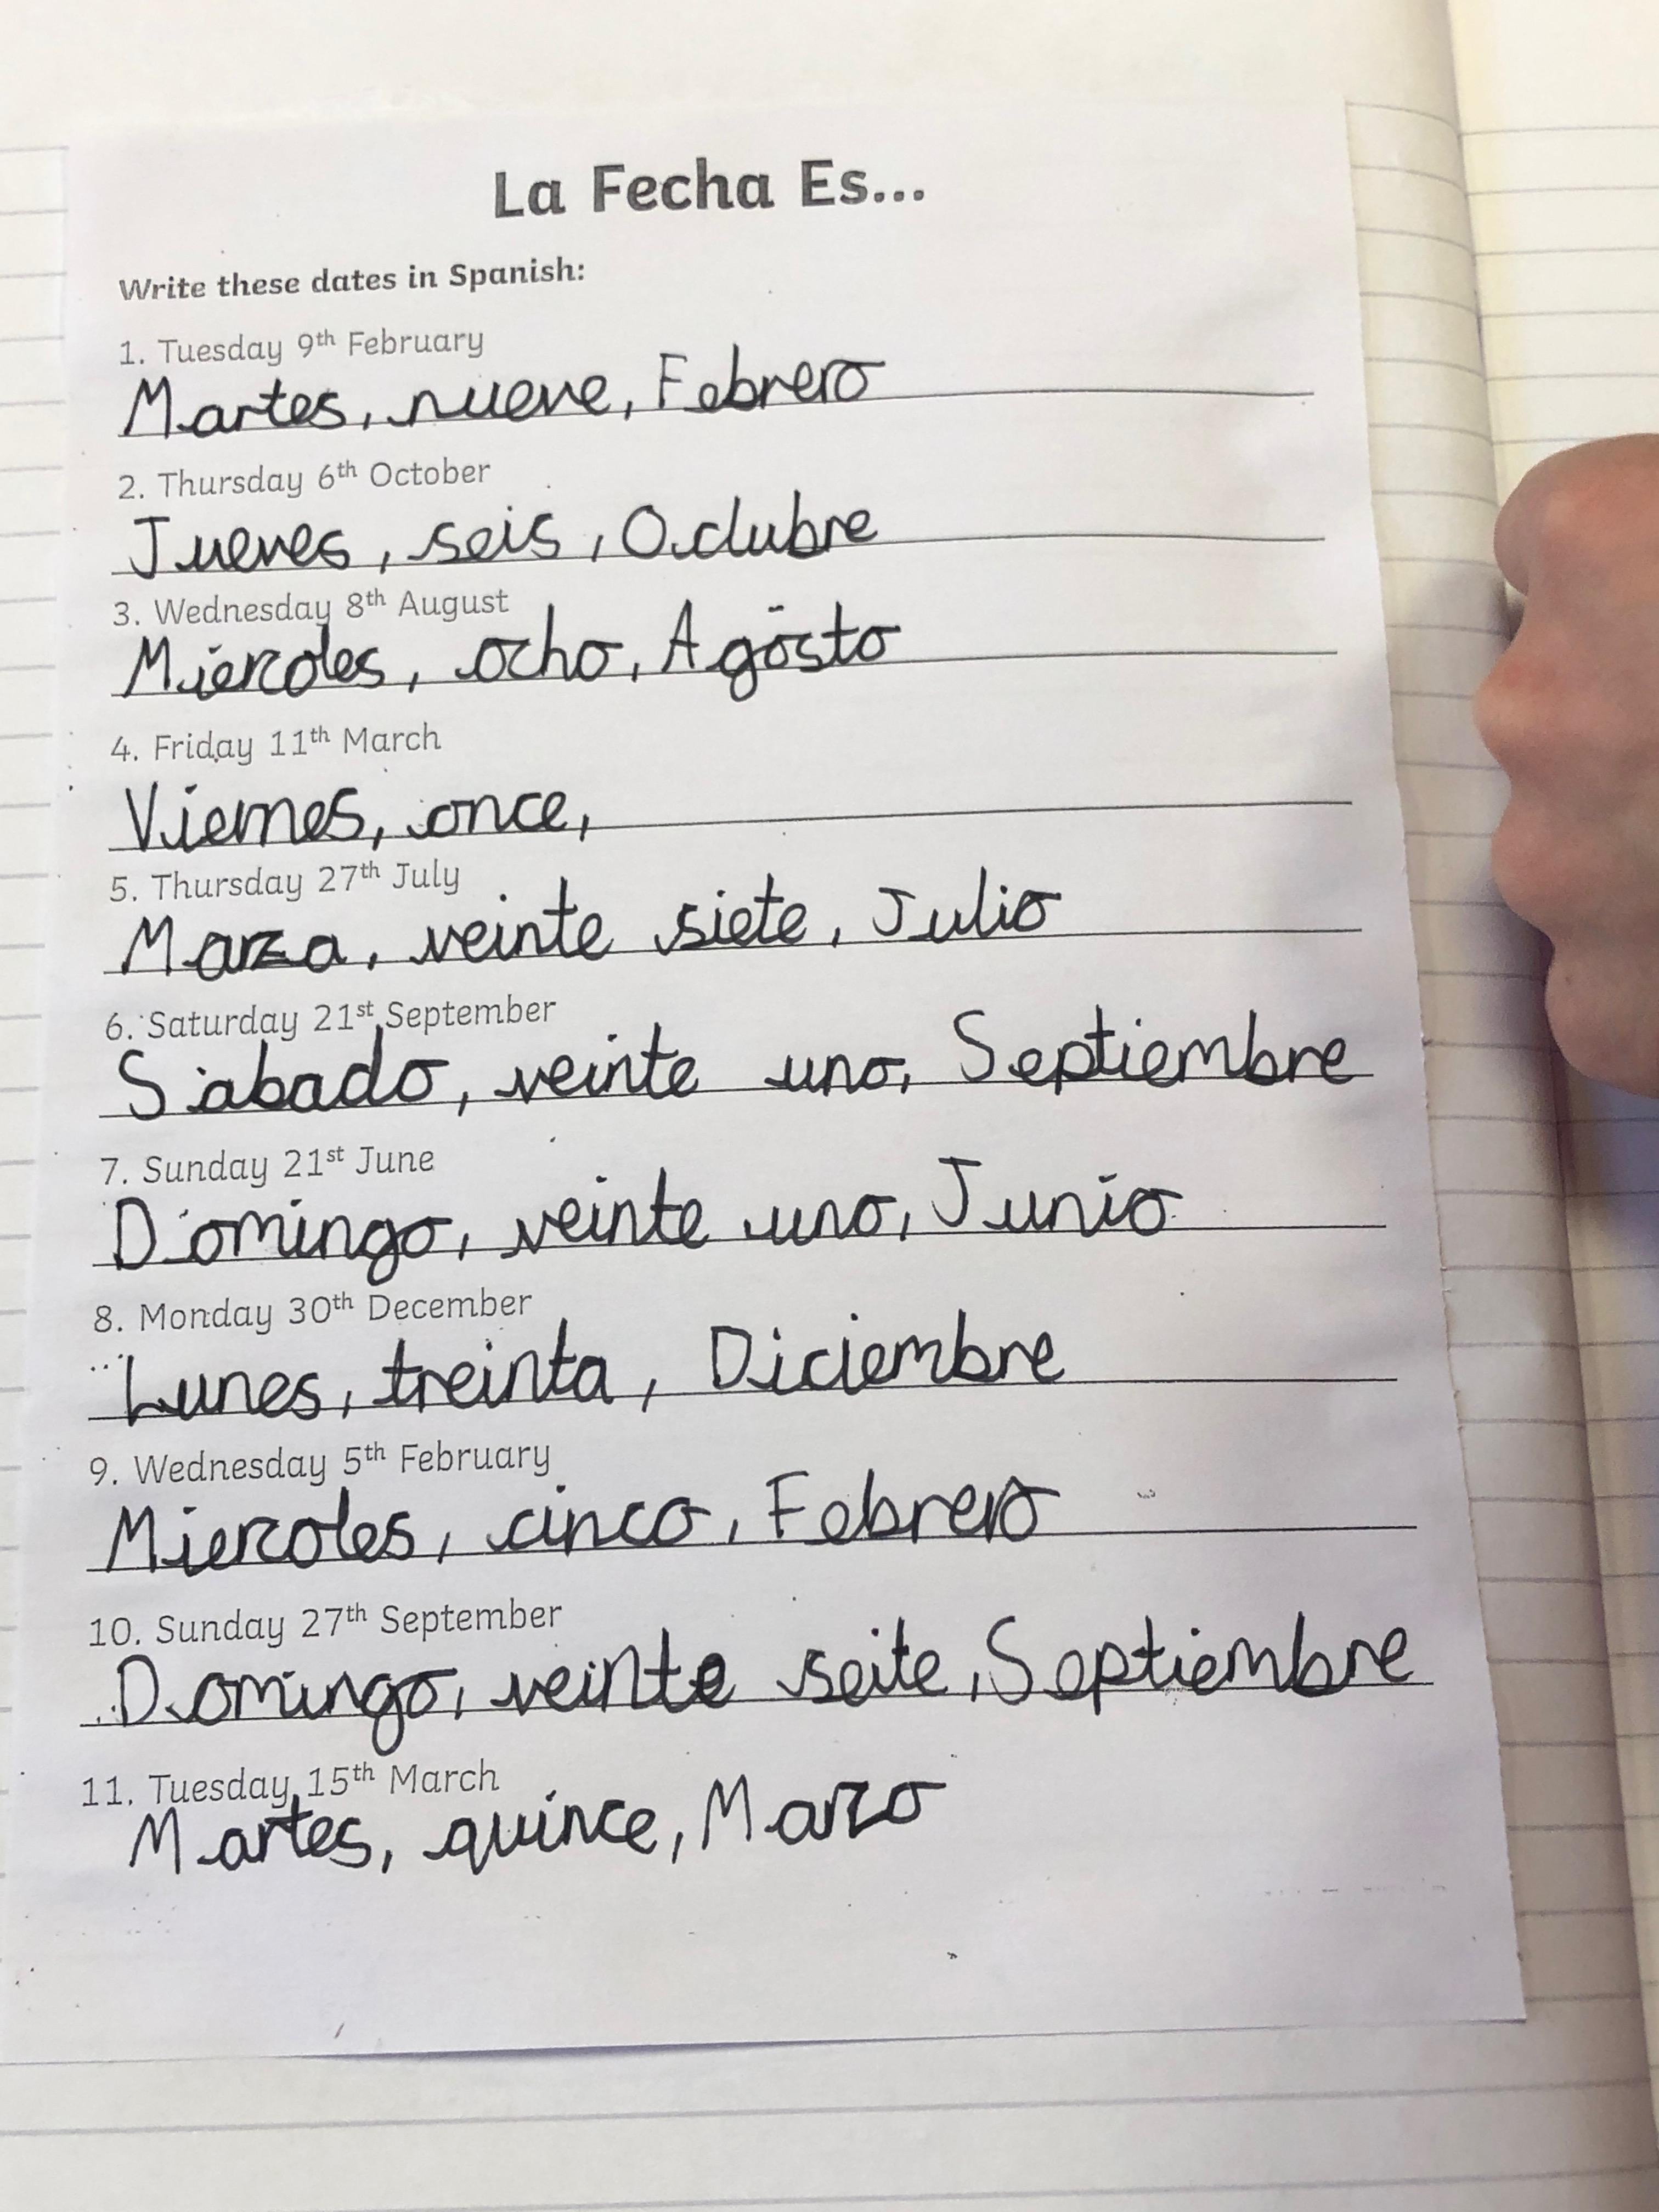 La Fecha Es...
Write these dates in Spanish:
1. Tuesday 9th February
Martes, nueve, Febrero
2. Thursday 6th October
Jueves, seis, Octubre
3. Wednesday 8th August
Miercoles, ocho, Agosto
4. Friday 11th March
Viernes, once,
5. Thursday 27th July
Marza, veinte siete, Julio
6. Saturday 21st September
Sabado, veinte uno, Septiembre
7. Sunday 21st June
Domingo, veinte uno, Junio
8. Monday 30th December
Lunes, treinta, Diciembre
9. Wednesday 5th February
Miercoles, cinco, Febrero
10. Sunday 27th September
Domingo, veinte seite, Septiembre
11. Tuesday 15th March
Martes, quince, Marzo